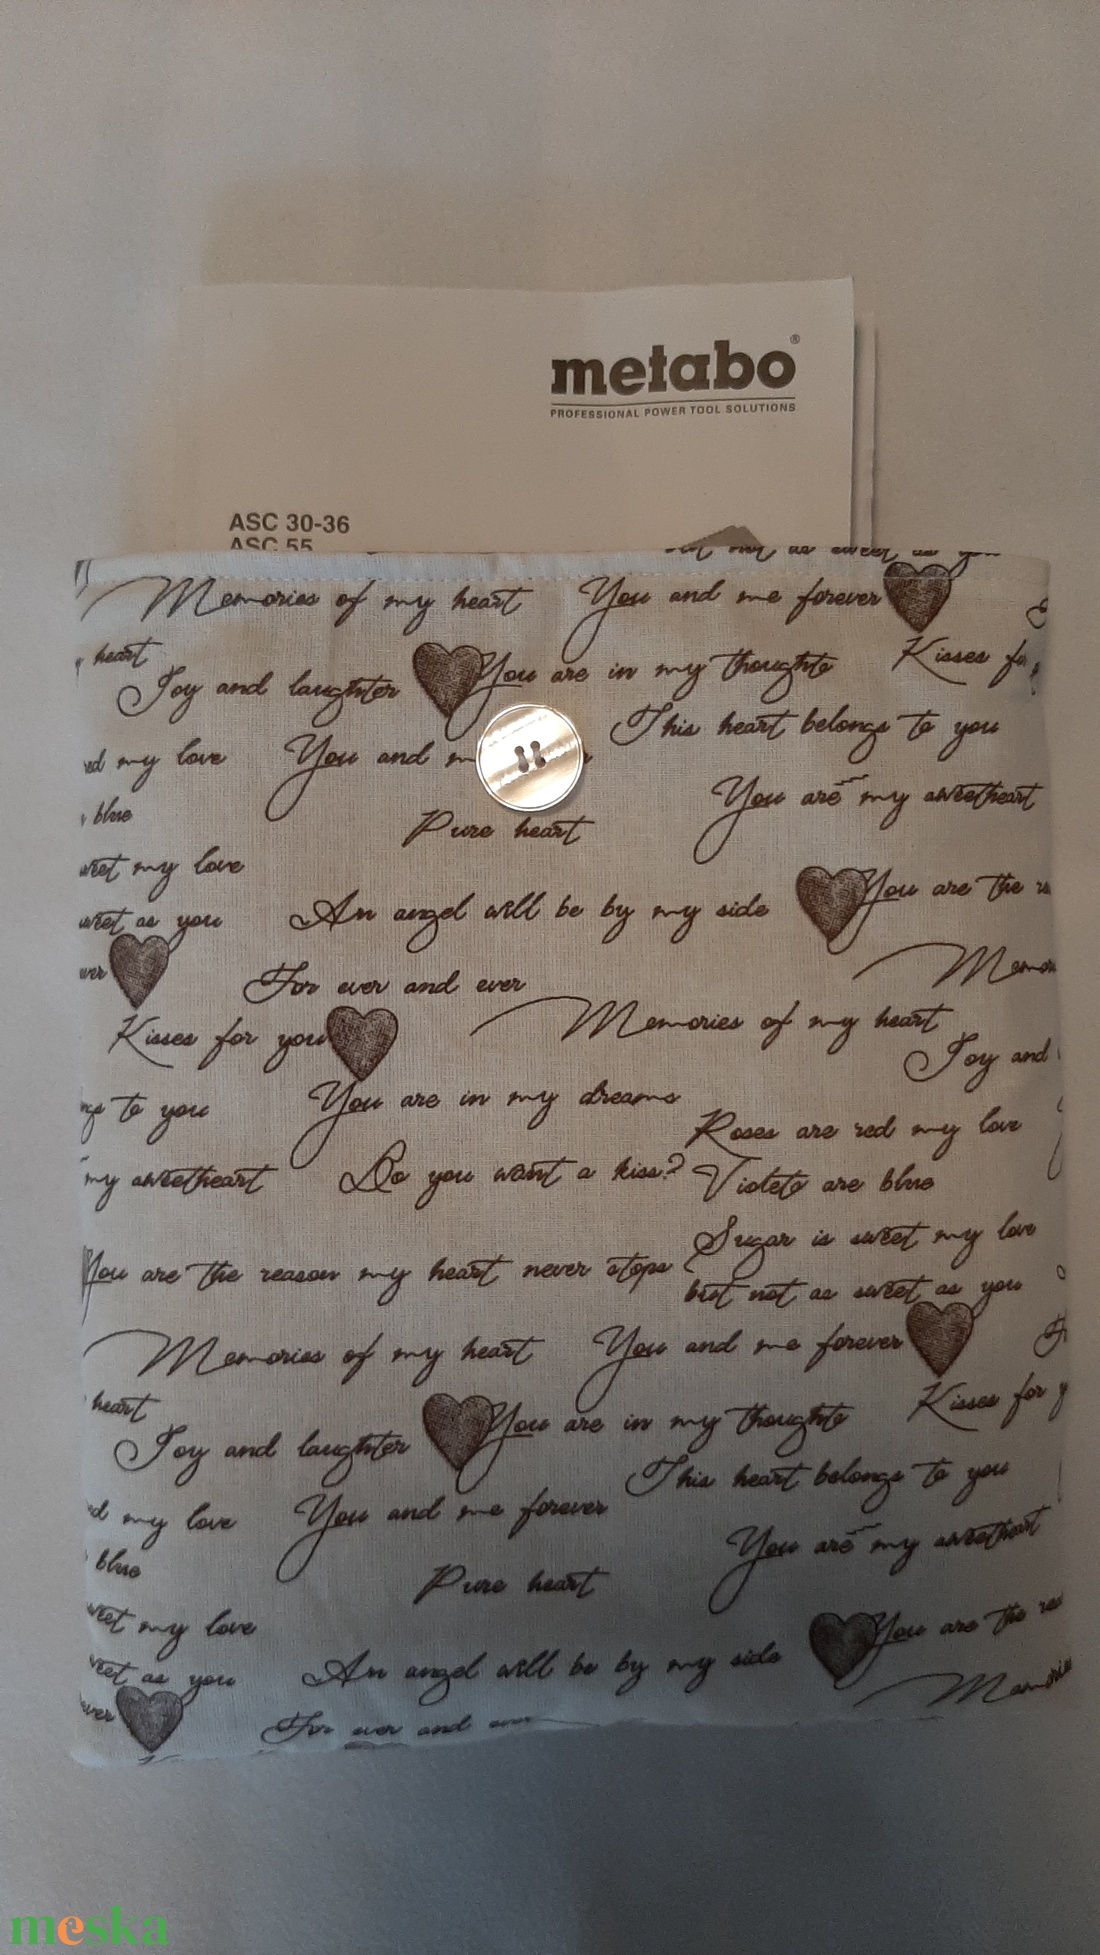 metabo®
PROFESSIONAL POWER TOOL SOLUTIONS
ASC 30-36
ASC 55
but not as sweet as you
Memories of my heart You and me forever
heart
Joy and laughter You are in my thoughts Kisses
This heart belongs to you
my love You and
You are my sweetheart
blue
Pure heart
my love
as you An angel will be by my side You are the
For ever and ever Memories
Kisses for you Memories of my heart
Joy and
to you You are in my dreams
Roses are red my love
my sweetheart Do you want a kiss? Violets are blue
Sugar is sweet my love
You are the reason my heart never stops
but not as sweet as you
Memories of my heart You and me forever
heart Kisses for
Joy and laughter You are in my thoughts
This heart belongs to you
my love You and me forever
You are my sweetheart
blue
Pure heart
my love
You are the
as you An angel will be by my side
Memories
For ever and ever
meska